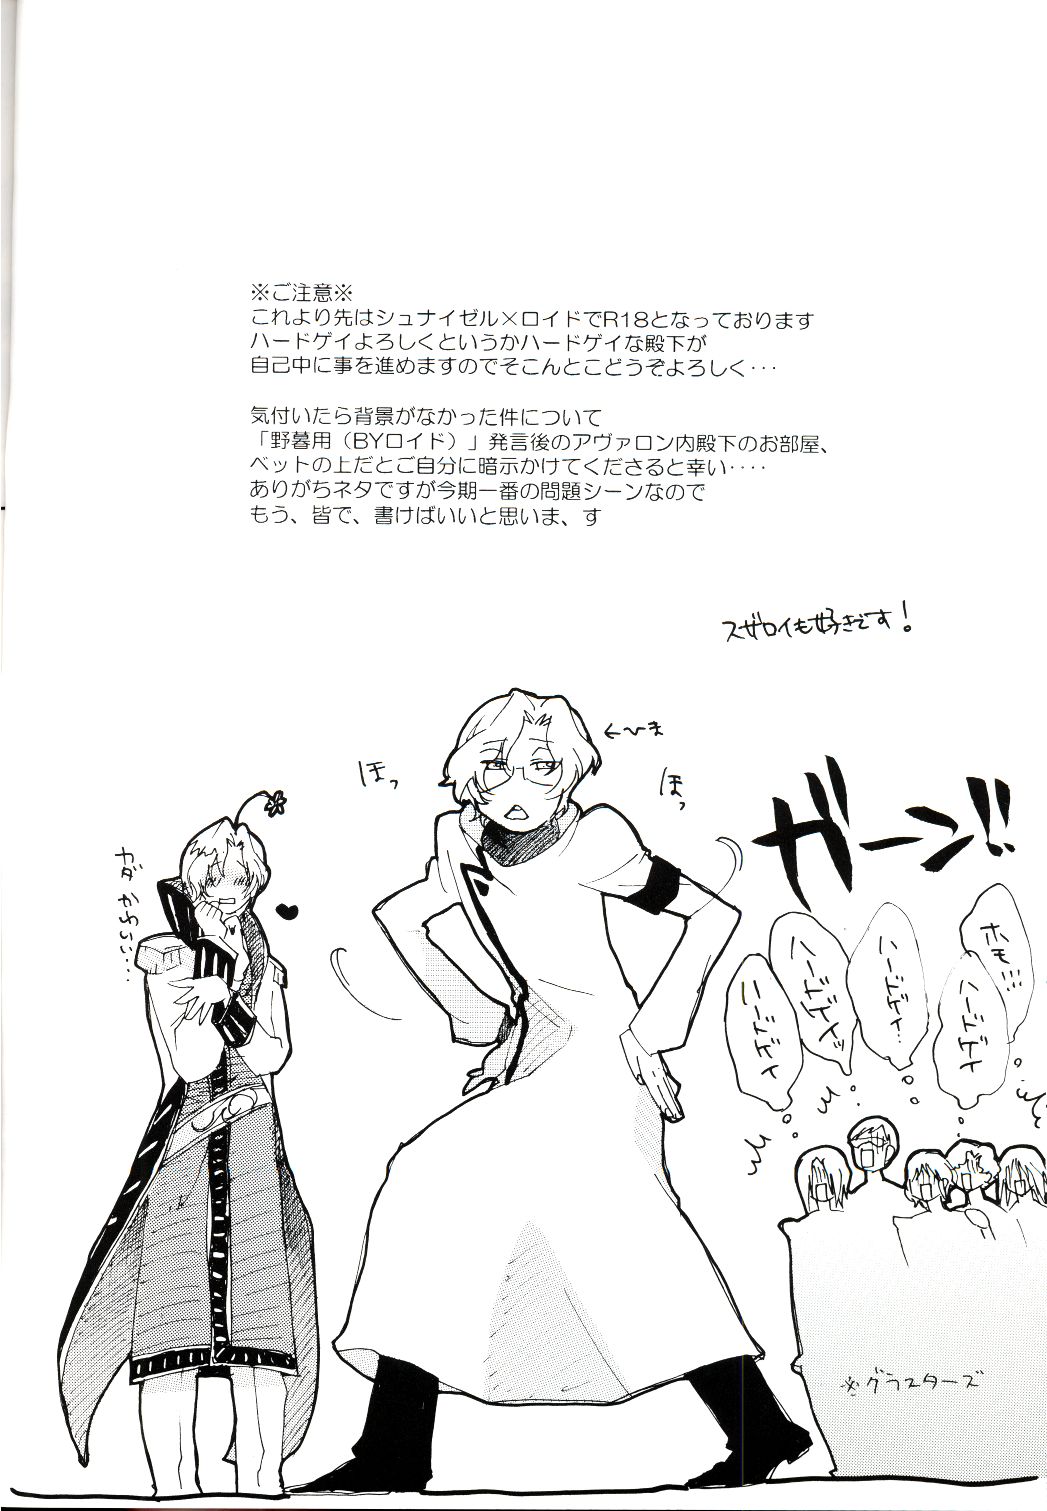 ※ご注意※
これより先はシュナイゼル×ロイドでR18となっております
ハードゲイよろしくというかハードゲイな殿下が
自己中に事を進めますのでそこんとこどうぞよろしく･･･
気付いたら背景がなかった件について
「野暮用（BYロイド）」発言後のアヴァロン内殿下のお部屋、
ベットの上だとご自分に暗示かけてくださると幸い････
ありがちネタですが今期一番の問題シーンなので
もう、皆で、書けばいいと思いま、す
スザロイも好きです！
←ひま
ほっ
ほっ
ガーン!!
ホモ…!!
ハードゲイ
ハードゲイ…
ハードゲイッ
ハードゲイ
ガタ かわい…
※グラスターズ